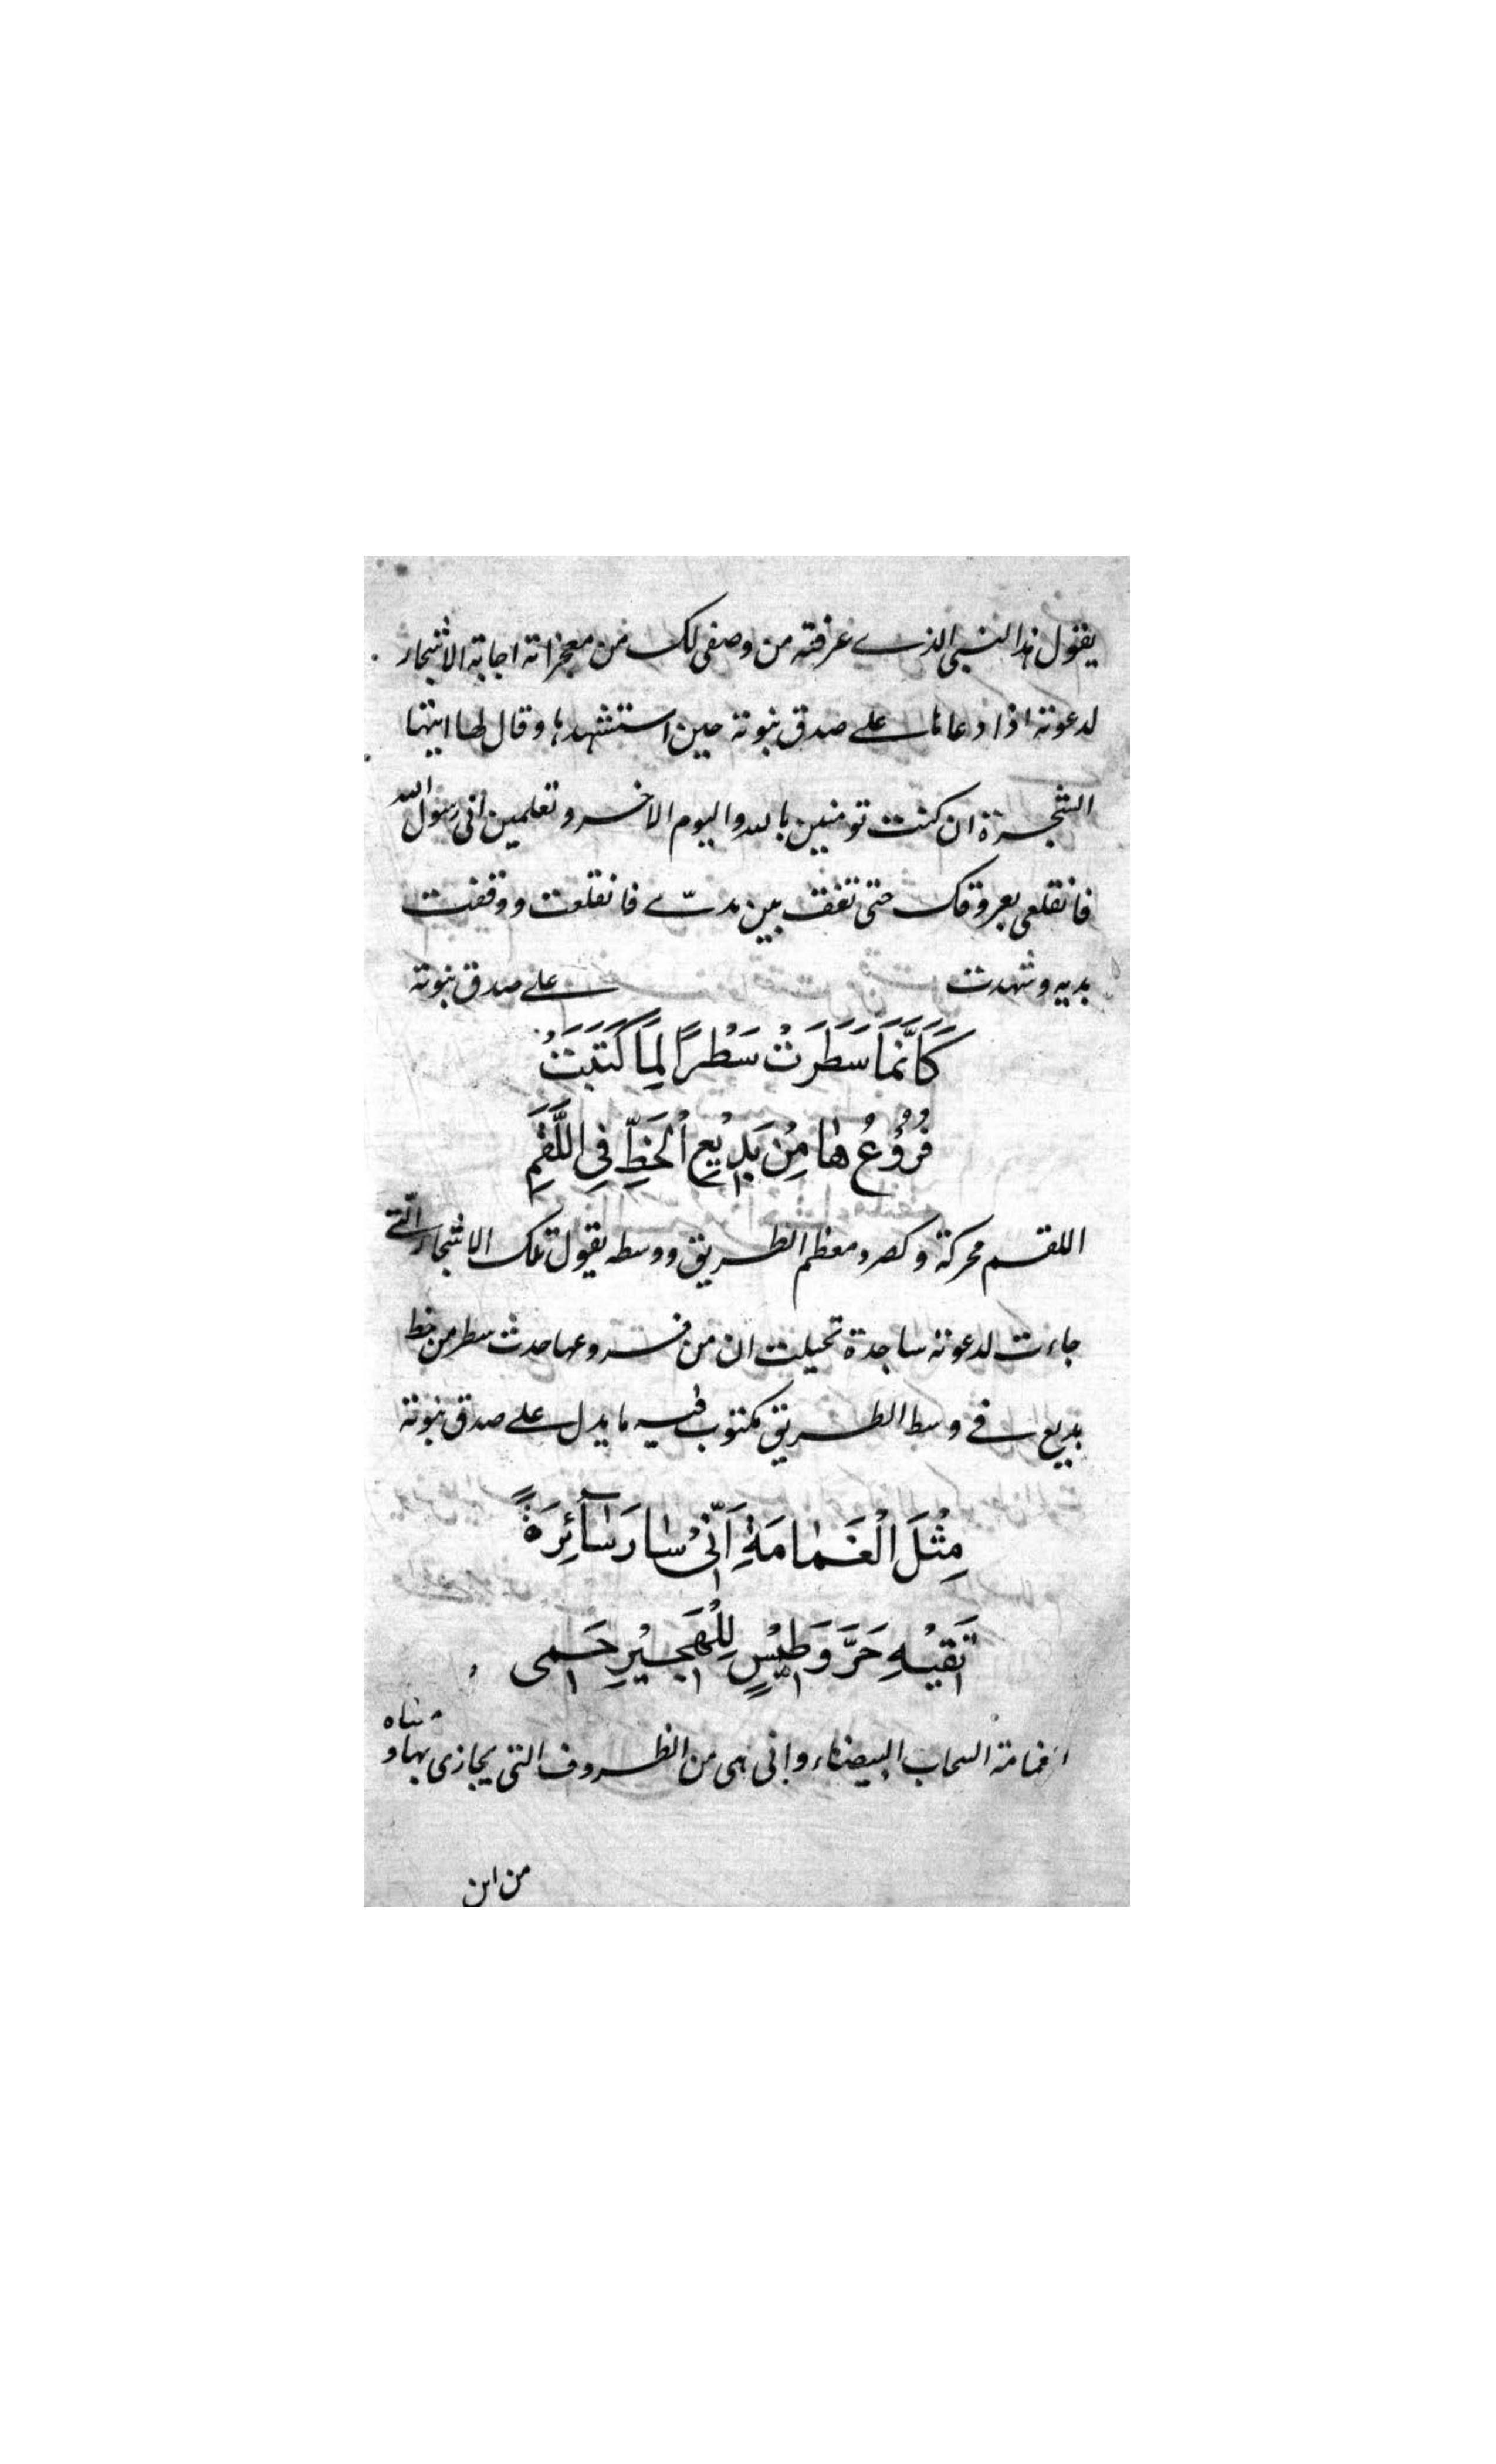 يقول هذا النبى الذے عرفته من وصفى لك من معجزاته اجابة الاشجار
لدعوته اذا دعاها على صدق نبوته حين استشهدها وقال لها ايتها
الشجرة ان كنت تومنين بالله واليوم الاخر وتعلمين انى رسول الله
فانقلعى بعروقك حتى تقف بين يدىّ فانقلعت ووقفت
يديه وشهدت على صدق نبوته
كَاَنَّمَا سَطَرَتْ سَطْرًا لِمَا كَتَبَتْ
فُرُوْعُهَا مِنْ بَدِيْعِ الْخَطِّ فِى اللَّقَمِ
اللقم محركة وكصرد معظم الطريق ووسطه يقول تلك الاشجار الّتے
جاءت لدعوته ساجدة تخيلت ان من فروعها حدث سطر من خط
بديع فے وسط الطريق مكتوب فيه ما يدل على صدق نبوته
مِثْلَ الْغَمَامَةِ اَنّٰى سَارَ سَآئِرَةً
تَقِيْهِ حَرَّ وَطِيْسٍ لِلْهَجِيْرِ حَمِى
الغمامة السحاب البيضاء وانى هى من الظروف التى يجازى بها و معناه
من اين